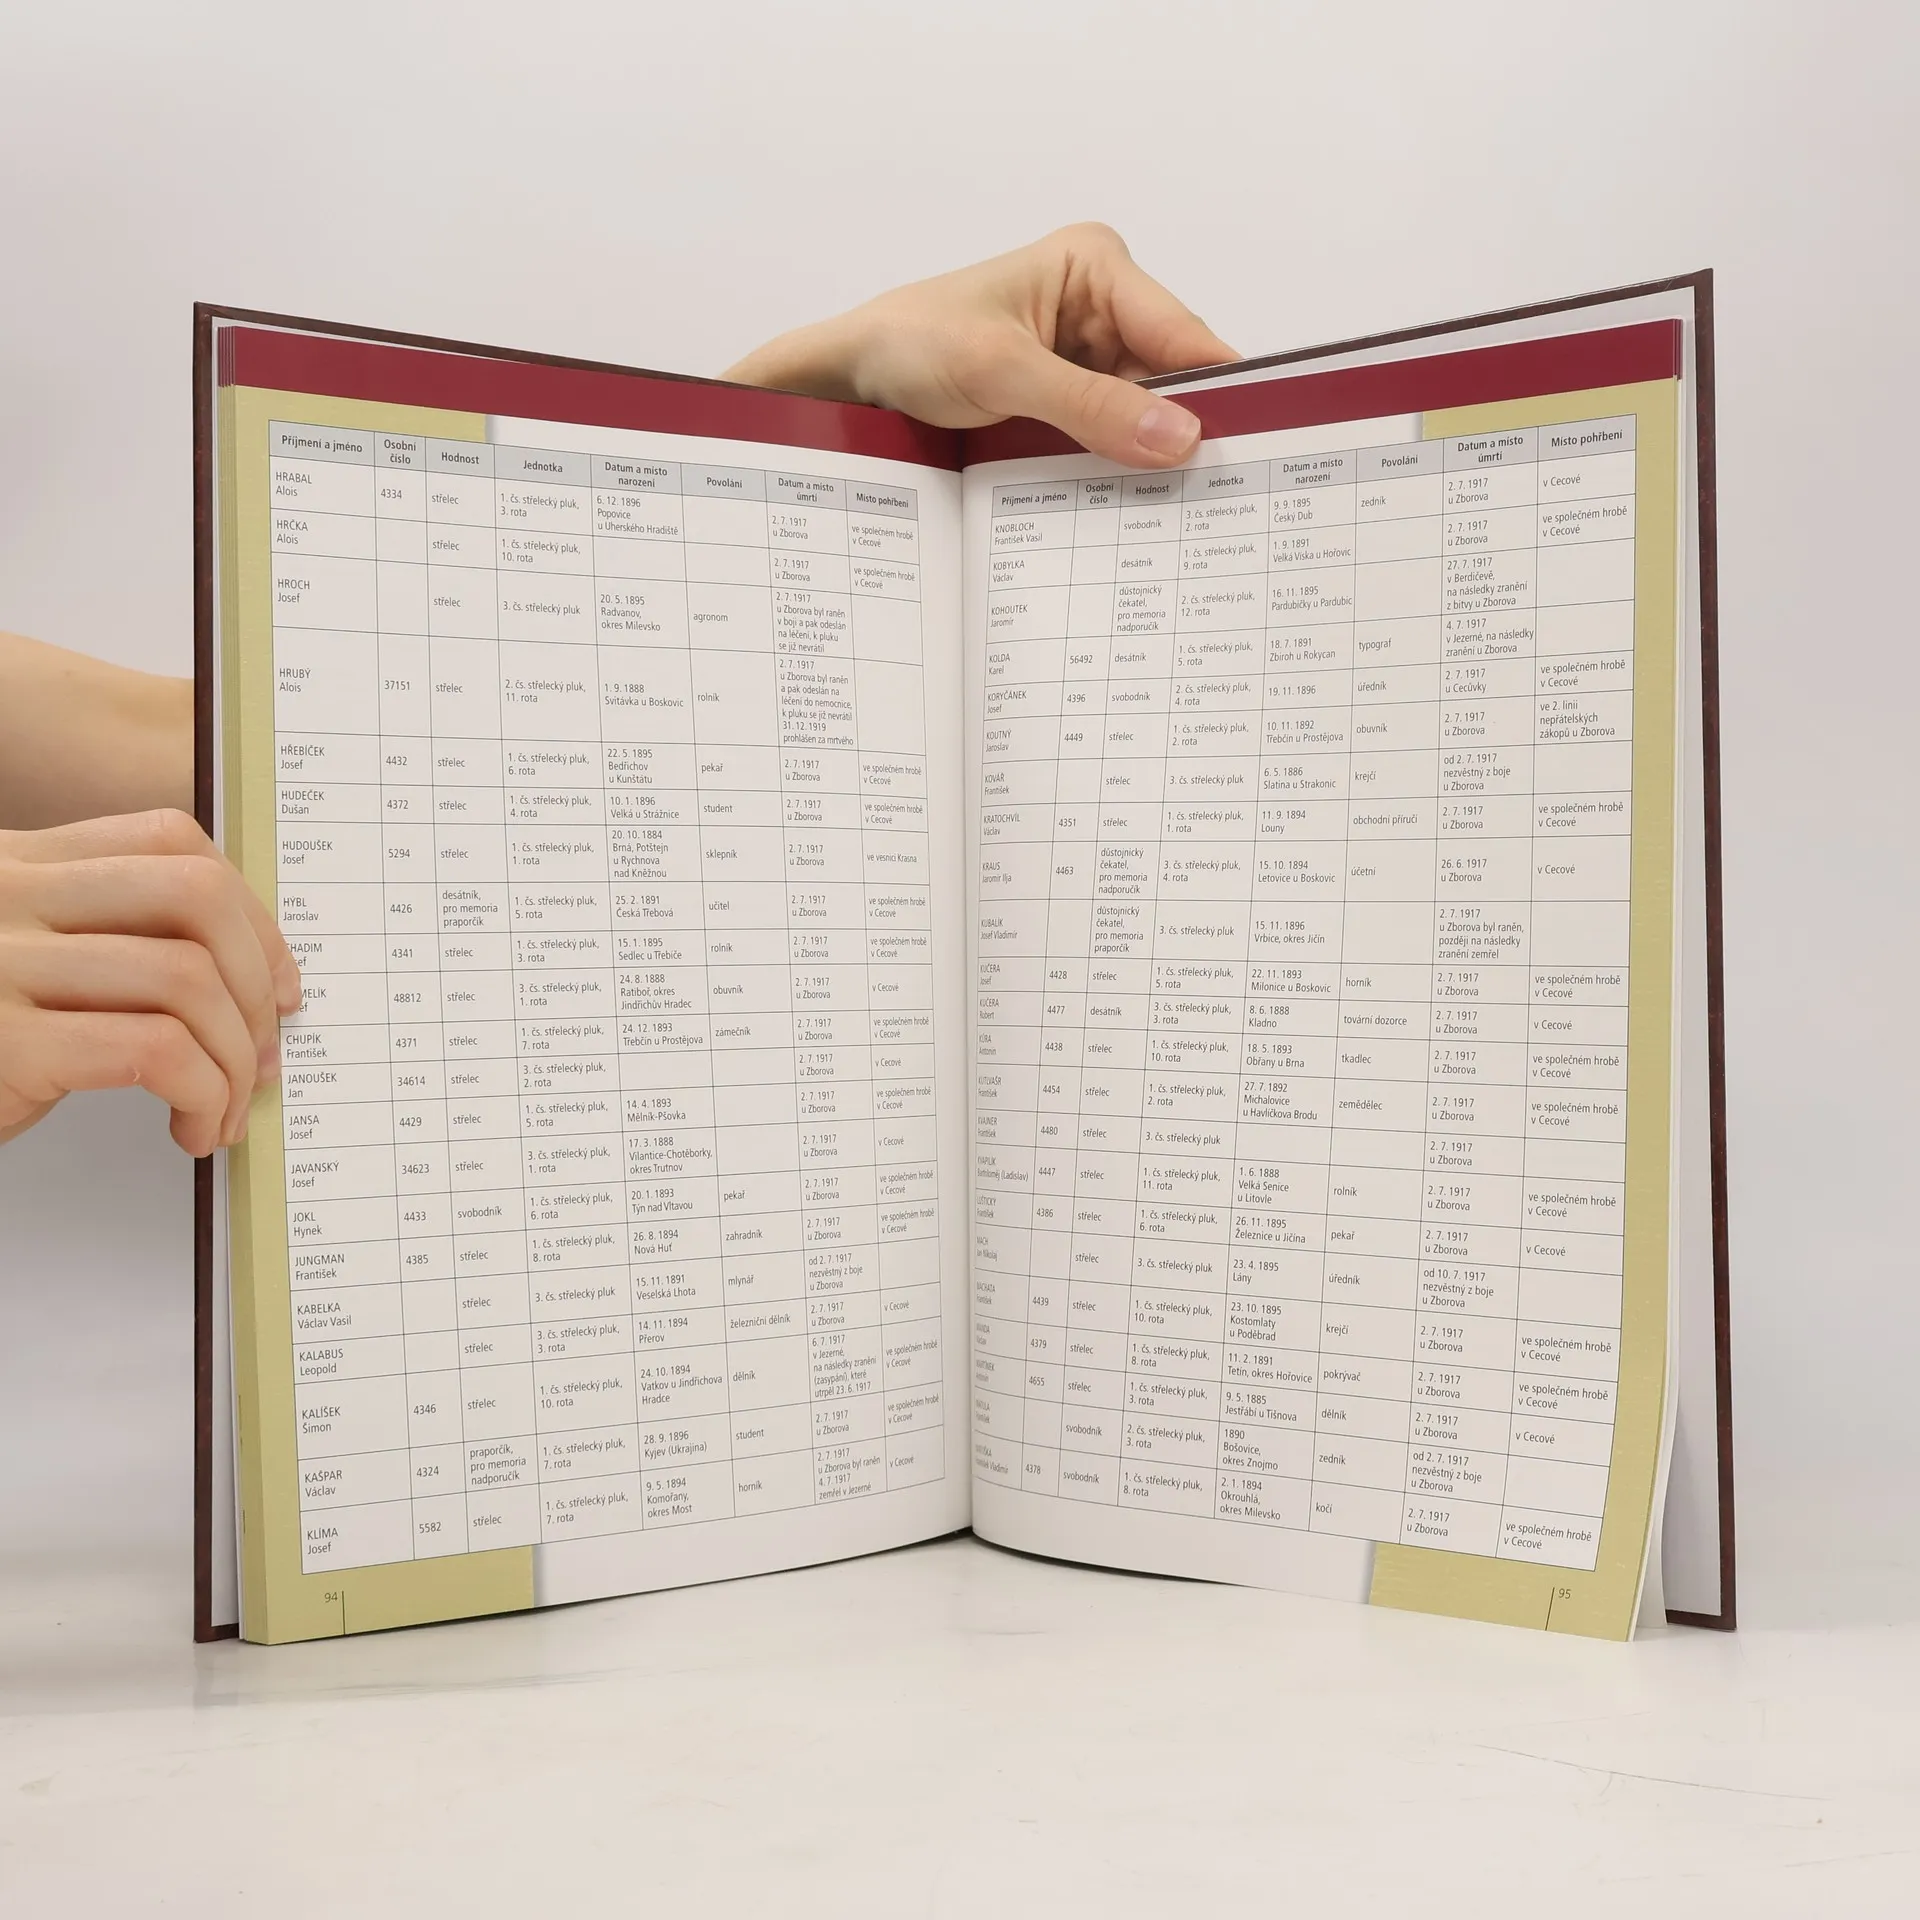 Příjmení a jméno
Osobní
číslo
Hodnost
Jednotka
Datum a místo
narození
Povolání
Datum a místo
úmrtí
Místo pohřbení
HRABAL
Alois
4334
střelec
1. čs. střelecký pluk,
3. rota
6. 12. 1896
Popovice
u Uherského Hradiště
2. 7. 1917
u Zborova
ve společném hrobě
v Cecové
HRČKA
Alois
střelec
1. čs. střelecký pluk,
10. rota
2. 7. 1917
u Zborova
ve společném hrobě
v Cecové
HROCH
Josef
střelec
3. čs. střelecký pluk
20. 5. 1895
Radvanov,
okres Milevsko
agronom
2. 7. 1917
u Zborova byl raněn
v boji a pak odeslán
na léčení, k pluku
se již nevrátil
HRUBÝ
Alois
37151
střelec
2. čs. střelecký pluk,
11. rota
1. 9. 1888
Svitávka u Boskovic
rolník
2. 7. 1917
u Zborova byl raněn
a pak odeslán na
léčení do nemocnice,
k pluku se již nevrátil
31. 12. 1919
prohlášen za mrtvého
HŘEBÍČEK
Josef
4432
střelec
1. čs. střelecký pluk,
6. rota
22. 5. 1895
Bedřichov
u Kunštátu
pekař
2. 7. 1917
u Zborova
ve společném hrobě
v Cecové
HUDEČEK
Dušan
4372
střelec
1. čs. střelecký pluk,
4. rota
10. 1. 1896
Velká u Strážnice
student
2. 7. 1917
u Zborova
ve společném hrobě
v Cecové
HUDOUŠEK
Josef
5294
střelec
1. čs. střelecký pluk,
1. rota
20. 10. 1884
Brná, Potštejn
u Rychnova
nad Kněžnou
sklepník
2. 7. 1917
u Zborova
ve vesnici Krasna
HÝBL
Jaroslav
4426
desátník,
pro memoria
praporčík
1. čs. střelecký pluk,
5. rota
25. 2. 1891
Česká Třebová
učitel
2. 7. 1917
u Zborova
ve společném hrobě
v Cecové
HADIM
ef
4341
střelec
1. čs. střelecký pluk,
3. rota
15. 1. 1895
Sedlec u Třebíče
rolník
2. 7. 1917
u Zborova
ve společném hrobě
v Cecové
MELÍK
ef
48812
střelec
3. čs. střelecký pluk,
1. rota
24. 8. 1888
Ratiboř, okres
Jindřichův Hradec
obuvník
2. 7. 1917
u Zborova
v Cecové
CHUPÍK
František
4371
střelec
1. čs. střelecký pluk,
7. rota
24. 12. 1893
Třebčín u Prostějova
zámečník
2. 7. 1917
u Zborova
ve společném hrobě
v Cecové
JANOUŠEK
Jan
34614
střelec
3. čs. střelecký pluk,
2. rota
2. 7. 1917
u Zborova
v Cecové
JANSA
Josef
4429
střelec
1. čs. střelecký pluk,
5. rota
14. 4. 1893
Mělník-Pšovka
2. 7. 1917
u Zborova
ve společném hrobě
v Cecové
JAVANSKÝ
Josef
34623
střelec
3. čs. střelecký pluk,
1. rota
17. 3. 1888
Vilantice-Chotěborky,
okres Trutnov
2. 7. 1917
u Zborova
v Cecové
JOKL
Hynek
4433
svobodník
1. čs. střelecký pluk,
6. rota
20. 1. 1893
Týn nad Vltavou
pekař
2. 7. 1917
u Zborova
ve společném hrobě
v Cecové
JUNGMAN
František
4385
střelec
1. čs. střelecký pluk,
8. rota
26. 8. 1894
Nová Huť
zahradník
2. 7. 1917
u Zborova
ve společném hrobě
v Cecové
KABELKA
Václav Vasil
střelec
3. čs. střelecký pluk
15. 11. 1891
Veselská Lhota
mlynář
od 2. 7. 1917
nezvěstný z boje
u Zborova
KALABUS
Leopold
střelec
3. čs. střelecký pluk,
3. rota
14. 11. 1894
Přerov
železniční dělník
2. 7. 1917
u Zborova
v Cecové
KALÍŠEK
Šimon
4346
střelec
1. čs. střelecký pluk,
10. rota
24. 10. 1894
Vatkov u Jindřichova
Hradce
dělník
6. 7. 1917
v Jezerné,
na následky zranění
(zasypání), které
utrpěl 23. 6. 1917
ve společném hrobě
v Cecové
KAŠPAR
Václav
4324
praporčík,
pro memoria
nadporučík
1. čs. střelecký pluk,
7. rota
28. 9. 1896
Kyjev (Ukrajina)
student
2. 7. 1917
u Zborova
ve společném hrobě
v Cecové
KLÍMA
Josef
5582
střelec
1. čs. střelecký pluk,
7. rota
9. 5. 1894
Komořany,
okres Most
horník
2. 7. 1917
u Zborova byl raněn
4. 7. 1917
zemřel v Jezerné
v Cecové
94
Příjmení a jméno
Osobní
číslo
Hodnost
Jednotka
Datum a místo
narození
Povolání
Datum a místo
úmrtí
Místo pohřbení
KNOBLOCH
František Vasil
svobodník
3. čs. střelecký pluk,
2. rota
9. 9. 1895
Český Dub
zedník
2. 7. 1917
u Zborova
v Cecové
KOBYLKA
Václav
desátník
1. čs. střelecký pluk,
9. rota
1. 9. 1891
Velká Víska u Hořovic
2. 7. 1917
u Zborova
ve společném hrobě
v Cecové
KOHOUTEK
Jaromír
důstojnický
čekatel,
pro memoria
nadporučík
2. čs. střelecký pluk,
12. rota
16. 11. 1895
Pardubičky u Pardubic
27. 7. 1917
v Berdičevě,
na následky zranění
z bitvy u Zborova
KOLDA
Karel
56492
desátník
1. čs. střelecký pluk,
5. rota
18. 7. 1891
Zbiroh u Rokycan
typograf
4. 7. 1917
v Jezerné, na následky
zranění u Zborova
KORYČÁNEK
Josef
4396
svobodník
2. čs. střelecký pluk,
4. rota
19. 11. 1896
úředník
2. 7. 1917
u Cecůvky
ve společném hrobě
v Cecové
KOUTNÝ
Jaroslav
4449
střelec
1. čs. střelecký pluk,
2. rota
10. 11. 1892
Třebčín u Prostějova
obuvník
2. 7. 1917
u Zborova
ve 2. linii
nepřátelských
zákopů u Zborova
KOVÁŘ
František
střelec
3. čs. střelecký pluk
6. 5. 1886
Slatina u Strakonic
krejčí
od 2. 7. 1917
nezvěstný z boje
u Zborova
KRATOCHVÍL
Václav
4351
střelec
1. čs. střelecký pluk,
1. rota
11. 9. 1894
Louny
obchodní příručí
2. 7. 1917
u Zborova
ve společném hrobě
v Cecové
KRAUS
Jaromír Ilja
4463
důstojnický
čekatel,
pro memoria
nadporučík
3. čs. střelecký pluk,
4. rota
15. 10. 1894
Letovice u Boskovic
účetní
26. 6. 1917
u Zborova
v Cecové
KUBALÍK
Josef Vladimír
důstojnický
čekatel,
pro memoria
praporčík
3. čs. střelecký pluk
15. 11. 1896
Vrbice, okres Jičín
2. 7. 1917
u Zborova byl raněn,
později na následky
zranění zemřel
KUČERA
Josef
4428
střelec
1. čs. střelecký pluk,
5. rota
22. 11. 1893
Milonice u Boskovic
horník
2. 7. 1917
u Zborova
ve společném hrobě
v Cecové
KUČERA
Robert
4477
desátník
3. čs. střelecký pluk,
3. rota
8. 6. 1888
Kladno
tovární dozorce
2. 7. 1917
u Zborova
v Cecové
KŮRA
Antonín
4438
střelec
1. čs. střelecký pluk,
10. rota
18. 5. 1893
Obřany u Brna
tkadlec
2. 7. 1917
u Zborova
ve společném hrobě
v Cecové
KUTLVAŠR
František
4454
střelec
1. čs. střelecký pluk,
2. rota
27. 7. 1892
Michalovice
u Havlíčkova Brodu
zemědělec
2. 7. 1917
u Zborova
ve společném hrobě
v Cecové
KVAJNER
František
4480
střelec
3. čs. střelecký pluk
2. 7. 1917
u Zborova
KVAPILÍK
Bartoloměj (Ladislav)
4447
střelec
1. čs. střelecký pluk,
11. rota
1. 6. 1888
Velká Senice
u Litovle
rolník
2. 7. 1917
u Zborova
ve společném hrobě
v Cecové
František
4386
střelec
1. čs. střelecký pluk,
6. rota
26. 11. 1895
Železnice u Jičína
pekař
2. 7. 1917
u Zborova
v Cecové
MACH
Jan Nikolaj
střelec
3. čs. střelecký pluk
23. 4. 1895
Lány
úředník
od 10. 7. 1917
nezvěstný z boje
u Zborova
MACHATA
František
4439
střelec
1. čs. střelecký pluk,
10. rota
23. 10. 1895
Kostomlaty
u Poděbrad
krejčí
2. 7. 1917
u Zborova
ve společném hrobě
v Cecové
4379
střelec
1. čs. střelecký pluk,
8. rota
11. 2. 1891
Tetín, okres Hořovice
pokrývač
2. 7. 1917
u Zborova
ve společném hrobě
v Cecové
MARTINEK
4655
střelec
1. čs. střelecký pluk,
3. rota
9. 5. 1885
Jestřábí u Tišnova
dělník
2. 7. 1917
u Zborova
v Cecové
svobodník
2. čs. střelecký pluk,
3. rota
1890
Bošovice,
okres Znojmo
zedník
od 2. 7. 1917
nezvěstný z boje
u Zborova
4378
svobodník
1. čs. střelecký pluk,
8. rota
2. 1. 1894
Okrouhlá,
okres Milevsko
kočí
2. 7. 1917
u Zborova
ve společném hrobě
v Cecové
95